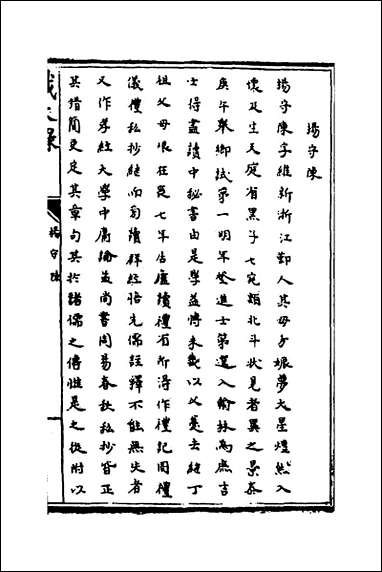 楊守陳
楊守陳字維新浙江鄞人其母方娠夢大星煜然入
懷及生左庭有黑子七宛類北斗狀見者異之景泰
庚午舉鄉試第一明年登進士第選入翰林為庶吉
士得盡讀中秘書由是學益博未幾以父憂去繼丁
祖父母艱在邑七年居廬讀禮有所得作禮記周禮
儀禮私抄繼而旬讀群經悟先儒註釋不能無失者
又作孝經大學中庸論孟尚書周易春秋私抄皆正
其錯簡更定其章句其於諸儒之傳惟是之從附以
楊守陳